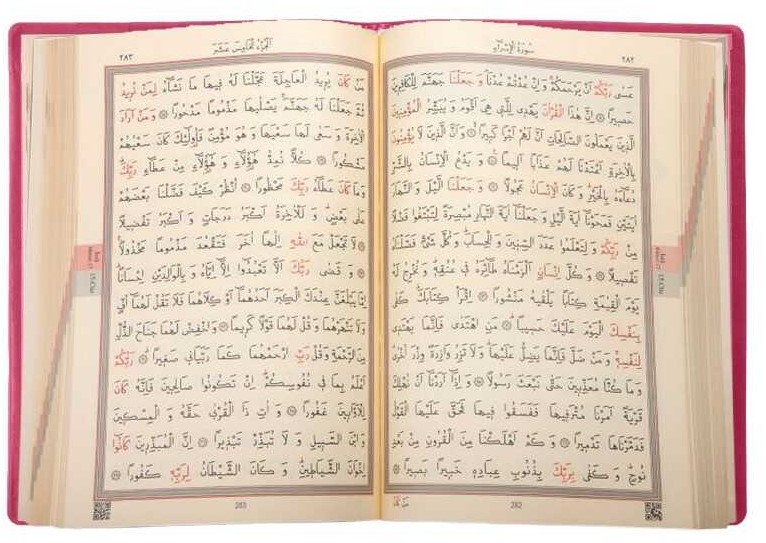 سُورَةُ الْإِسْرَاءِ ٢٨٢
عَسٰى رَبُّكُمْ اَنْ يَرْحَمَكُمْ وَ اِنْ عُدْتُمْ عُدْنَا وَ جَعَلْنَا جَهَنَّمَ لِلْكَافِرِينَ
حَصِيرًا ۝ اِنَّ هٰذَا الْقُرْاٰنَ يَهْدِى لِلَّتِى هِىَ اَقْوَمُ وَ يُبَشِّرُ الْمُؤْمِنِينَ
الَّذِينَ يَعْمَلُونَ الصَّالِحَاتِ اَنَّ لَهُمْ اَجْرًا كَبِيرًا ۝ وَ اَنَّ الَّذِينَ لَا يُؤْمِنُونَ
بِالْاٰخِرَةِ اَعْتَدْنَا لَهُمْ عَذَابًا اَلِيمًا ۝ وَ يَدْعُ الْاِنْسَانُ بِالشَّرِّ
دُعَاءَهُ بِالْخَيْرِ وَ كَانَ الْاِنْسَانُ عَجُولًا ۝ وَ جَعَلْنَا الَّيْلَ وَ النَّهَارَ
اٰيَتَيْنِ فَمَحَوْنَا اٰيَةَ الَّيْلِ وَ جَعَلْنَا اٰيَةَ النَّهَارِ مُبْصِرَةً لِتَبْتَغُوا فَضْلًا
مِنْ رَبِّكُمْ وَ لِتَعْلَمُوا عَدَدَ السِّنِينَ وَ الْحِسَابَ وَ كُلَّ شَىْءٍ فَصَّلْنَاهُ
تَفْصِيلًا ۝ وَ كُلَّ اِنْسَانٍ اَلْزَمْنَاهُ طَائِرَهُ فِى عُنُقِهِ وَ نُخْرِجُ لَهُ
يَوْمَ الْقِيٰمَةِ كِتَابًا يَلْقٰيهُ مَنْشُورًا ۝ اِقْرَأْ كِتَابَكَ كَفٰى
بِنَفْسِكَ الْيَوْمَ عَلَيْكَ حَسِيبًا ۝ مَنِ اهْتَدٰى فَاِنَّمَا يَهْتَدِى
لِنَفْسِهِ وَ مَنْ ضَلَّ فَاِنَّمَا يَضِلُّ عَلَيْهَا وَ لَا تَزِرُ وَازِرَةٌ وِزْرَ اُخْرٰى
وَ مَا كُنَّا مُعَذِّبِينَ حَتّٰى نَبْعَثَ رَسُولًا ۝ وَ اِذَا اَرَدْنَا اَنْ نُهْلِكَ
قَرْيَةً اَمَرْنَا مُتْرَفِيهَا فَفَسَقُوا فِيهَا فَحَقَّ عَلَيْهَا الْقَوْلُ
فَدَمَّرْنَاهَا تَدْمِيرًا ۝ وَ كَمْ اَهْلَكْنَا مِنَ الْقُرُونِ مِنْ بَعْدِ
نُوحٍ وَ كَفٰى بِرَبِّكَ بِذُنُوبِ عِبَادِهِ خَبِيرًا بَصِيرًا ۝
مَنْ كَانَ
282
اَلْجُزْءُ الْخَامِسَ عَشَرَ ٢٨٣
مَنْ كَانَ يُرِيدُ الْعَاجِلَةَ عَجَّلْنَا لَهُ فِيهَا مَا نَشَاءُ لِمَنْ نُرِيدُ
ثُمَّ جَعَلْنَا لَهُ جَهَنَّمَ يَصْلٰيهَا مَذْمُومًا مَدْحُورًا ۝ وَ مَنْ اَرَادَ
الْاٰخِرَةَ وَ سَعٰى لَهَا سَعْيَهَا وَ هُوَ مُؤْمِنٌ فَاُولٰئِكَ كَانَ سَعْيُهُمْ
مَشْكُورًا ۝ كُلًّا نُمِدُّ هٰؤُلَاءِ وَ هٰؤُلَاءِ مِنْ عَطَاءِ رَبِّكَ
وَ مَا كَانَ عَطَاءُ رَبِّكَ مَحْظُورًا ۝ اُنْظُرْ كَيْفَ فَضَّلْنَا بَعْضَهُمْ
عَلٰى بَعْضٍ وَ لَلْاٰخِرَةُ اَكْبَرُ دَرَجَاتٍ وَ اَكْبَرُ تَفْضِيلًا
۝ لَا تَجْعَلْ مَعَ اللّٰهِ اِلٰهًا اٰخَرَ فَتَقْعُدَ مَذْمُومًا مَخْذُولًا
۝ وَ قَضٰى رَبُّكَ اَلَّا تَعْبُدُوا اِلَّا اِيَّاهُ وَ بِالْوَالِدَيْنِ اِحْسَانًا
اِمَّا يَبْلُغَنَّ عِنْدَكَ الْكِبَرَ اَحَدُهُمَا اَوْ كِلَاهُمَا فَلَا تَقُلْ لَهُمَا اُفٍّ
وَ لَا تَنْهَرْهُمَا وَ قُلْ لَهُمَا قَوْلًا كَرِيمًا ۝ وَ اخْفِضْ لَهُمَا جَنَاحَ الذُّلِّ
مِنَ الرَّحْمَةِ وَ قُلْ رَبِّ ارْحَمْهُمَا كَمَا رَبَّيَانِى صَغِيرًا ۝ رَبُّكُمْ
اَعْلَمُ بِمَا فِى نُفُوسِكُمْ اِنْ تَكُونُوا صَالِحِينَ فَاِنَّهُ كَانَ
لِلْاَوَّابِينَ غَفُورًا ۝ وَ اٰتِ ذَا الْقُرْبٰى حَقَّهُ وَ الْمِسْكِينَ
وَ ابْنَ السَّبِيلِ وَ لَا تُبَذِّرْ تَبْذِيرًا ۝ اِنَّ الْمُبَذِّرِينَ كَانُوا
اِخْوَانَ الشَّيَاطِينِ وَ كَانَ الشَّيْطَانُ لِرَبِّهِ كَفُورًا ۝
283